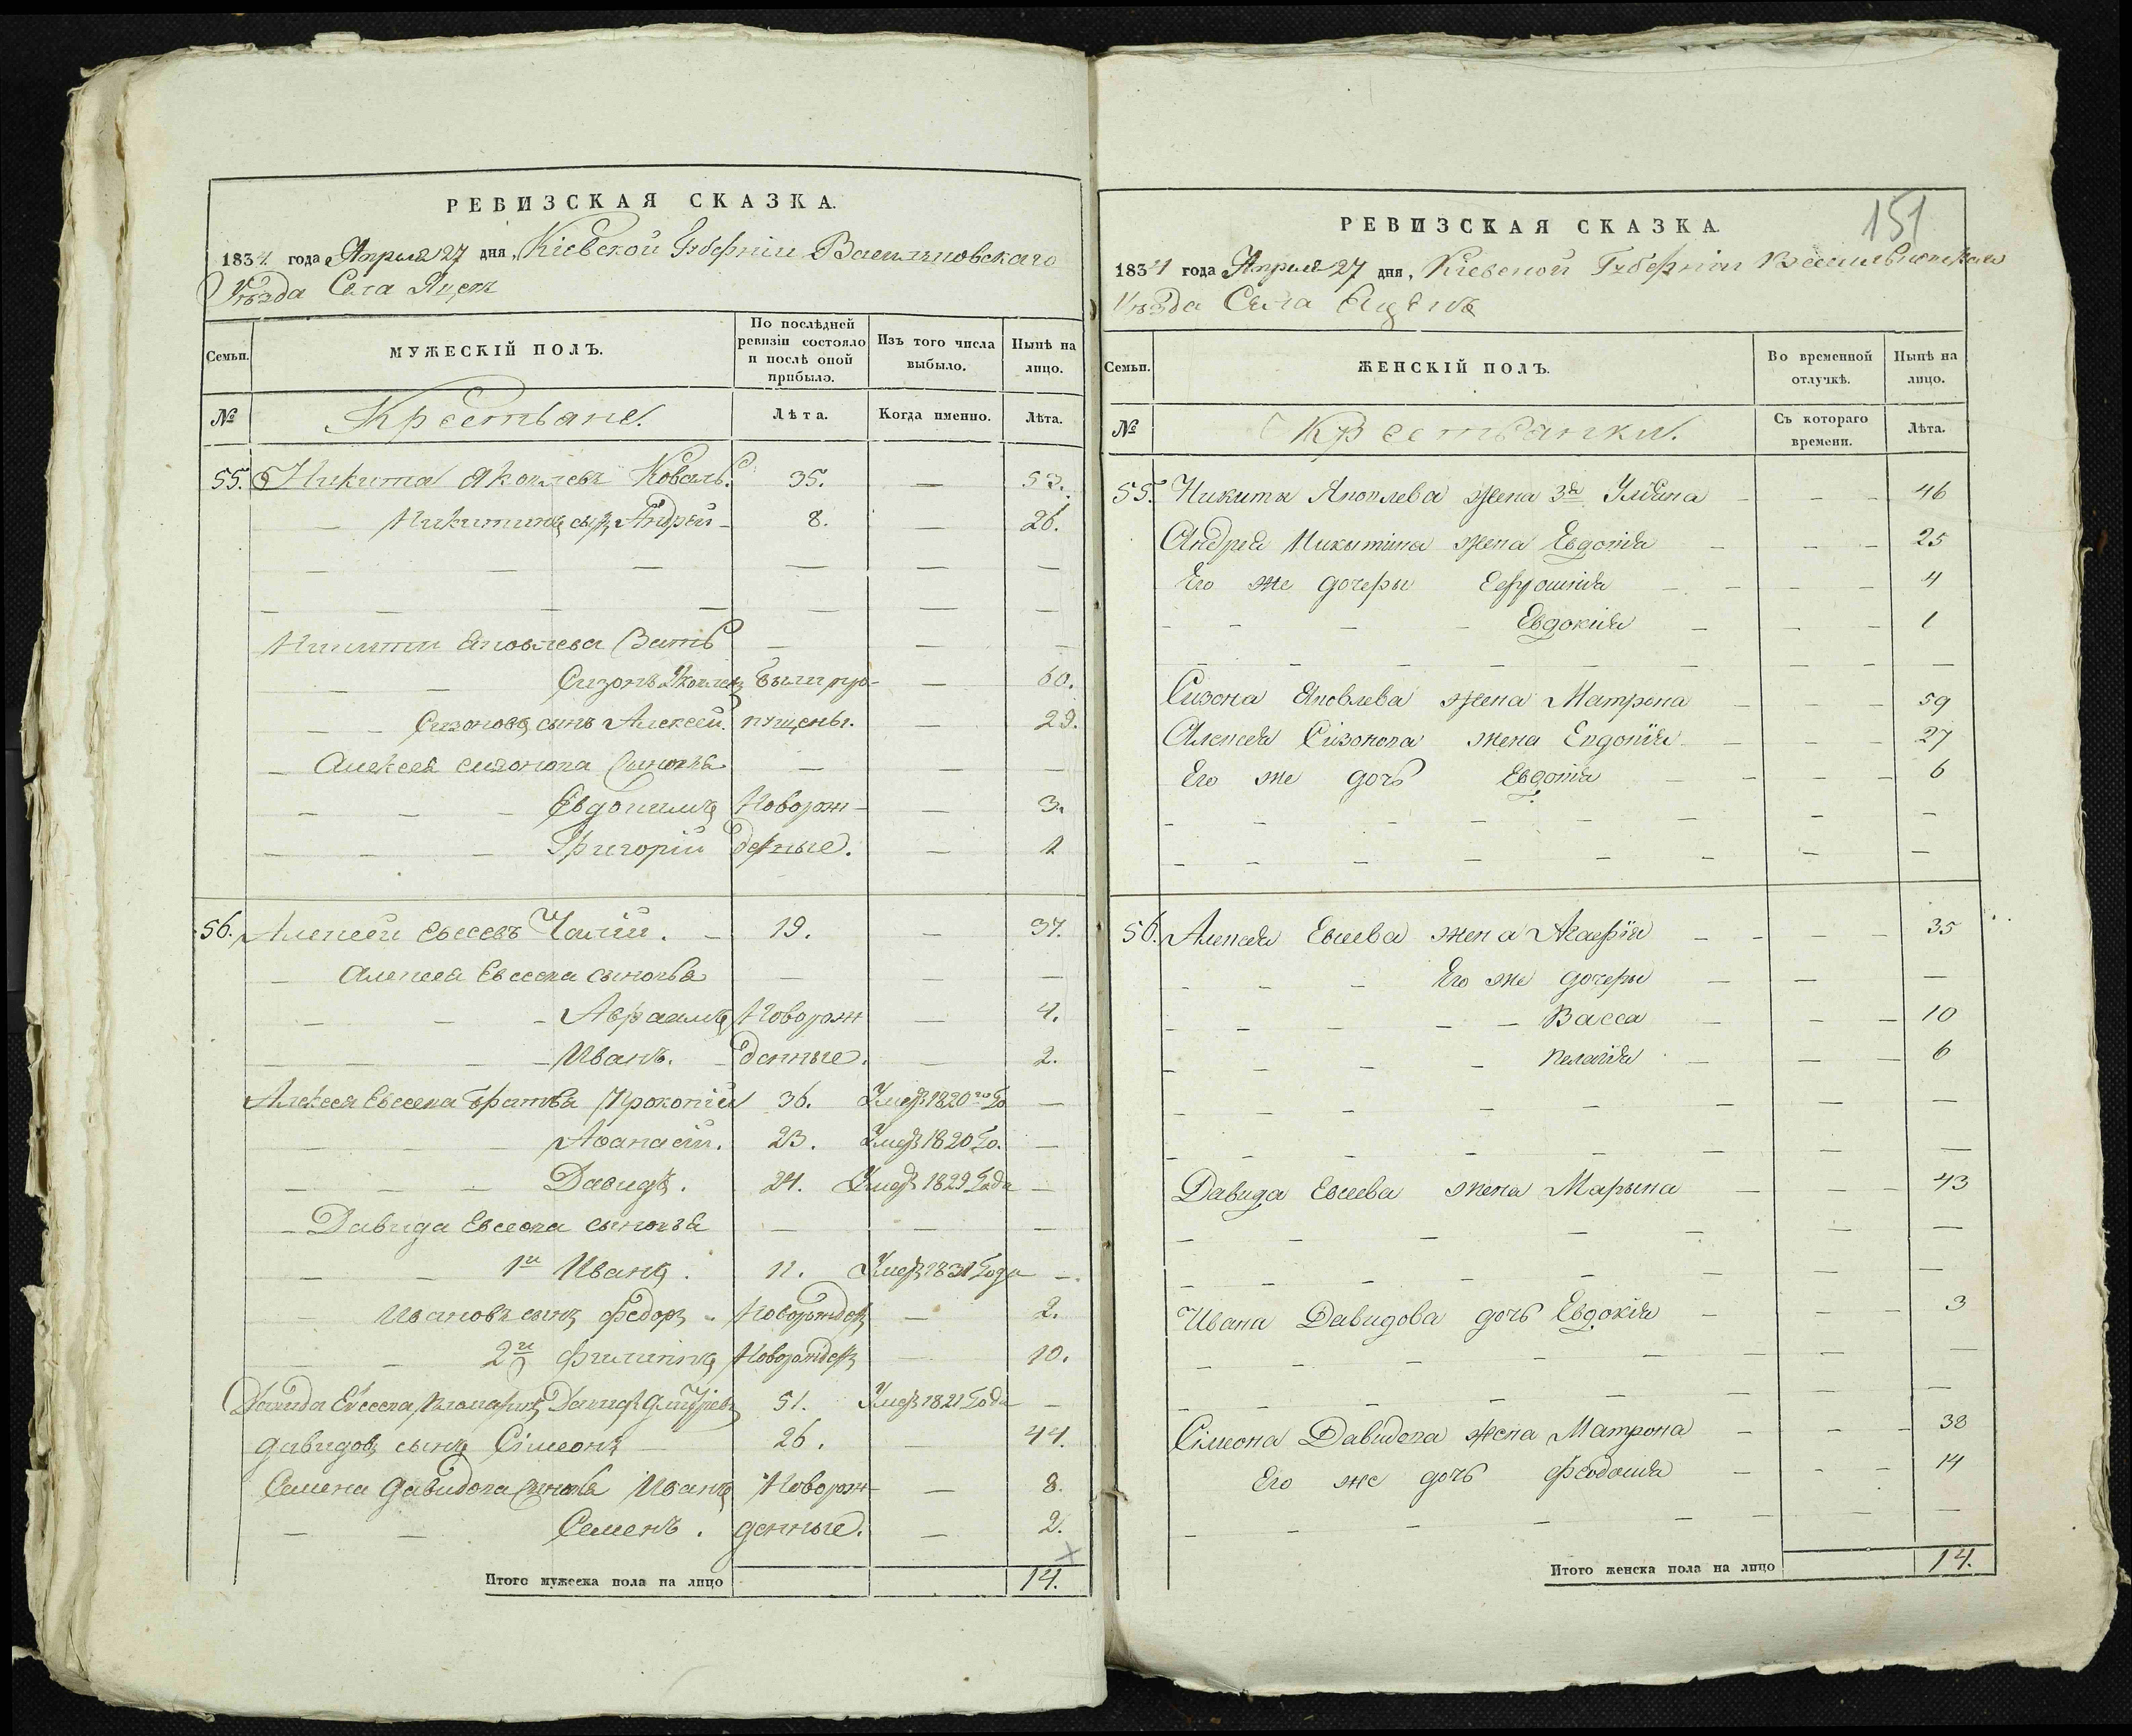 РЕВИЗСКАЯ СКАЗКА.
1834 года Апреля 27 дня, Кіевской Губерніи Васильковскаго
Уѣзда Села Яцекъ
Семьи. МУЖЕСКІЙ ПОЛЪ. По послѣдней ревизіи состояло и послѣ оной прибыло. Изъ того числа выбыло. Нынѣ на лицо.
№ Крестьяне. Лѣта. Когда именно. Лѣта.
55. Никита Яковлевъ Коваль. 35. — 53.
— Никитинъ сынъ Андрей — 8. — 26.
Никиты Яковлева Зять — — —
— — Сизонъ Яковлевъ были про- — 60.
— — Сизоновъ сынъ Алексей. пущены. — 29.
— Алексея Сизонова Сыновья — — —
— — — Евдокимъ Новорож- — 3.
— — — Григорій денные. — 1
56. Алексей Евсеевъ Чалій. — 19. — 37.
— Алексея Евсеева сыновья — — —
— — — Авраамъ Новорож — 4.
— — — Иванъ. денные. — 2.
Алексея Евсеева братья Прокопій 36. Умеръ 1820го Го —
— — — Афанасій. 23. Умеръ 1820 Го. —
— — — Давидъ. 24. Умеръ 1829 Года —
— Давида Евсеева сыновья — — —
— — 1й Иванъ. 11. Умеръ 1831 Года —
— Ивановъ сынъ Федоръ Новорожден — 2.
— — 2й Филиппъ Новорожден — 10.
Давида Евсеева 51. Умеръ 1821 Года —
Давидовъ сынъ Сімеонъ — 26. — 44.
Семена Давидова Сыновья Иванъ Новорож- — 8.
— — Семенъ. денные. — 2.
Итого мужеска пола на лицо 14.
151
РЕВИЗСКАЯ СКАЗКА.
1834 года Апреля 27 дня, Кіевской Губерніи Васильковскаго
Уѣзда Села Яцекъ
Семьи. ЖЕНСКІЙ ПОЛЪ. Во временной отлучкѣ. Нынѣ на лицо.
№ Крестьянки. Съ котораго времени. Лѣта.
55. Никиты Яковлева жена 3я Улияна — — — 46
Андрея Никитина жена Евдокія — — — 25
Его же дочеры Ефросинія — — — 4
— — — Евдокия — — — 1
Сизона Яковлева жена Матрона — — — 59
Алексея Сизонова жена Евдокія — — — 27
Его же дочь Евдокія — — — 6
56. Алексея Евсеева жена Агафія — — — 35
— — — Его же дочеры — — —
— — — — Васса — — — 10
— — — — Пелагія — — — 6
Давида Евсеева жена Марына — — — 43
Ивана Давидова дочь Евдокія — — — 3
Сімеона Давидова жена Матрона — — — 38
Его же дочь Феодосия — — — 14
Итого женска пола на лицо 14.